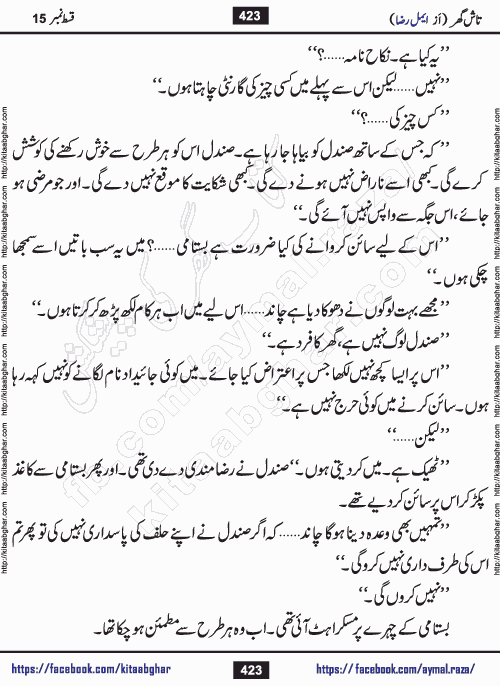 قسط نمبر 15
423
تاش گھر (از ایمل رضا)
’’یہ کیا ہے۔ نکاح نامہ......؟‘‘
’’نہیں......لیکن اس سے پہلے میں کسی چیز کی گارنٹی چاہتا ہوں۔‘‘
’’کس چیز کی......؟‘‘
’’کہ جس کے ساتھ صندل کو بیاہا جا رہا ہے۔ صندل اس کو ہر طرح سے خوش رکھنے کی کوشش
کرے گی۔ کبھی اسے ناراض نہیں ہونے دے گی۔ کبھی شکایت کا موقع نہیں دے گی۔ اور جو مرضی ہو
جائے، اس جگہ سے واپس نہیں آئے گی۔‘‘
’’اس کے لیے سائن کروانے کی کیا ضرورت ہے بستامی......؟ میں یہ سب باتیں اسے سمجھا
چکی ہوں۔‘‘
’’مجھے بہت لوگوں نے دھوکا دیا ہے چاند......اس لیے میں اب ہر کام لکھ پڑھ کر کرتا ہوں۔‘‘
’’صندل لوگ نہیں ہے، گھر کا فرد ہے۔‘‘
’’اس پر ایسا کچھ نہیں لکھا جس پر اعتراض کیا جائے۔ میں کوئی جائیداد نام لگانے کو نہیں کہہ رہا
ہوں۔ سائن کرنے میں کوئی حرج نہیں ہے۔‘‘
’’لیکن......‘‘
’’ٹھیک ہے۔ میں کر دیتی ہوں۔‘‘ صندل نے رضا مندی دے دی تھی۔ اور پھر بستامی سے کاغذ
پکڑ کر اس پر سائن کر دیے تھے۔
’’تمہیں بھی وعدہ دینا ہوگا چاند......کہ اگر صندل نے اپنے حلف کی پاسداری نہیں کی تو پھر تم
اس کی طرف داری نہیں کرو گی۔‘‘
’’نہیں کروں گی۔‘‘
بستامی کے چہرے پر مسکراہٹ آئی تھی۔ اب وہ ہر طرح سے مطمئن ہو چکا تھا۔
https://facebook.com/kitaabghar
423
https://facebook.com/aymal.raza/
http://kitaabghar.com